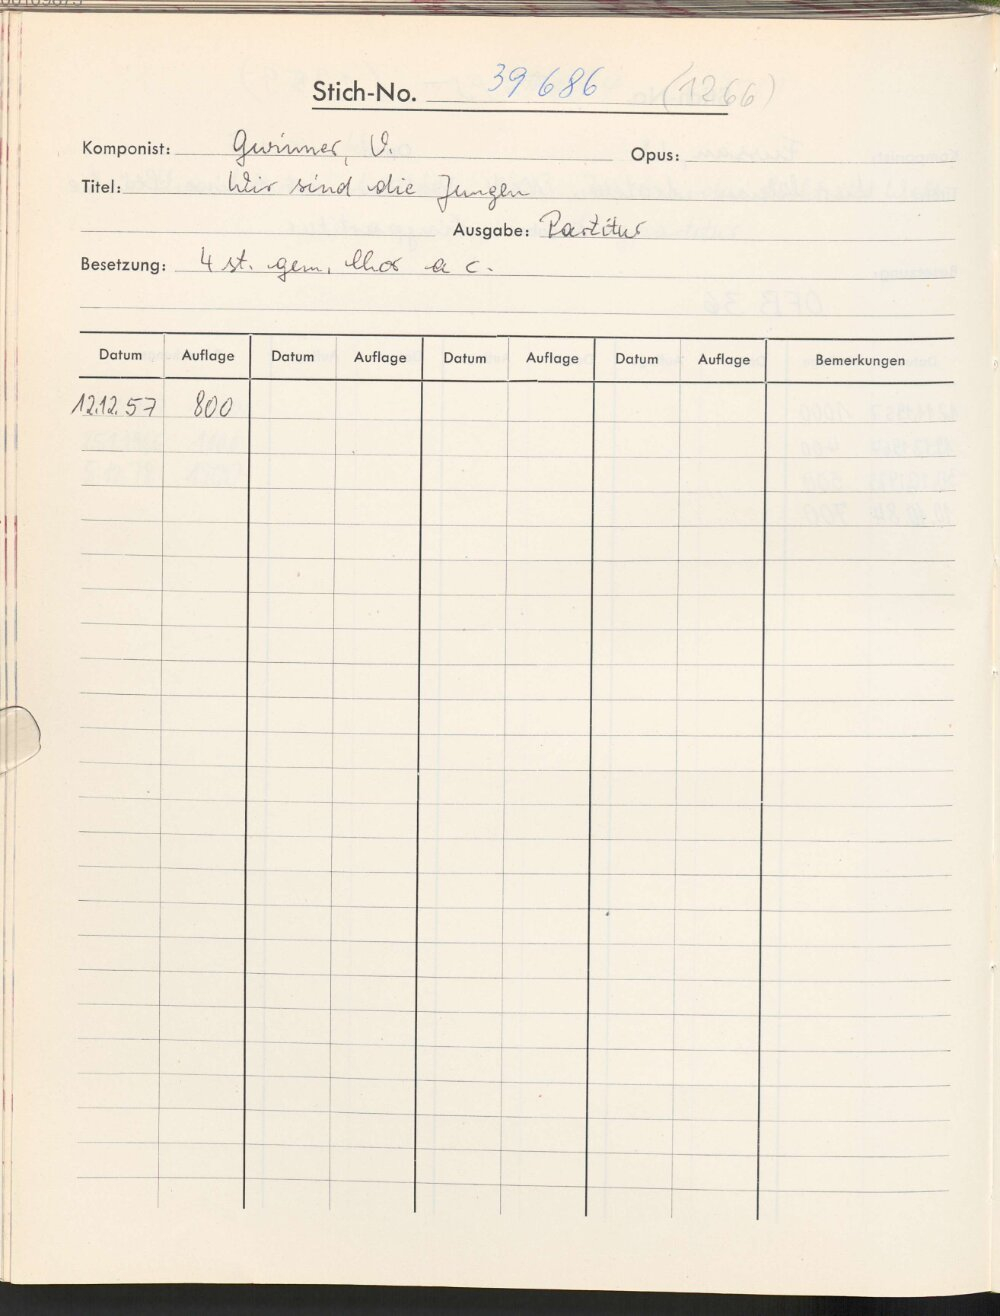 Stich-No. 39 686 (1266)
Komponist: Gwinner, V. Opus:
Titel: Wir sind die Jungen
Ausgabe: Partitur
Besetzung: 4 st. gem. Chor a c.
Datum Auflage Datum Auflage Datum Auflage Datum Auflage Bemerkungen
12.12.57 800